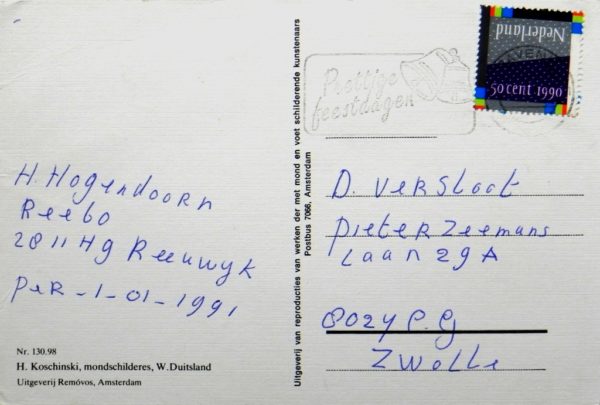 H. Hogendoorn
Reebo
2811 Hg Reeuwyk
per-1-01-1991
Nr. 130.98
H. Koschinski, mondschilderes, W.Duitsland
Uitgeverij Removos, Amsterdam
Uitgeverij van reproducties van werken der met mond en voet schilderende kunstenaars
Postbus 7066, Amsterdam
Prettige
feestdagen
Nederland
50 cent 1990
D. Versloot
Pieter Zeemans
Laan 29A
8024 P.G
Zwolle